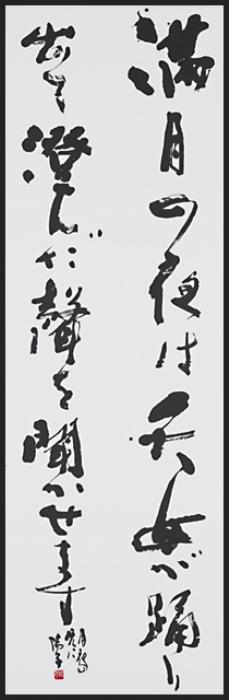 満月の夜は天女が踊り
出て澄んだ聲を聞かせます